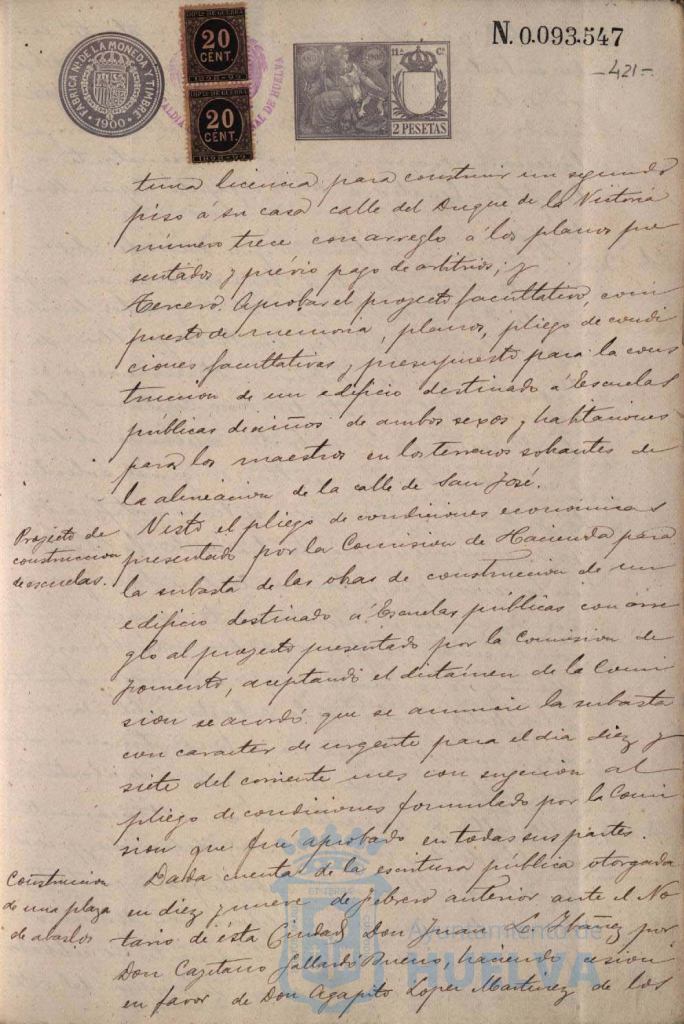 N. 0.093.547
-421-
FABRICA N. DE LA MONEDA Y TIMBRE
1900
20
CENT.
1898-99
20
CENT.
1898-99
DE HUELVA
11ª Cª
2 PESETAS
tuna licencia para construir un segundo
piso á su casa calle del Duque de la Victoria
número trece con arreglo á los planos pre
sentados y prévio pago de arbitrios; y
Tercero. Aprobar el proyecto facultativo, com
puesto de memoria, planos, pliego de condi
ciones facultativas y presupuesto para la cons
truccion de un edificio destinado á Escuelas
públicas de niños de ambos sexos y habitaciones
para los maestros en los terrenos sobrantes de
la alineacion de la calle de San José.
Proyecto de
construccion
de escuelas.
Visto el pliego de condiciones economicas
presentado por la Comision de Hacienda para
la subasta de las obras de construccion de un
edificio destinado á Escuelas públicas con arre
glo al proyecto presentado por la Comision de
Fomento, aceptando el dictámen de la Comi
sion se acordó que se anuncie la subasta
con caracter de urgente para el dia diez y
siete del corriente mes con sugecion al
pliego de condiciones formulado por la Comi
sion que fué aprobado en todas sus partes.
Construccion
de una plaza
de abastos
Dada cuenta de la escritura pública otorgada
en diez y nueve de febrero anterior ante el No
tario de ésta Ciudad Don Juan L. Ibáñez por
Don Cayetano Gallardo Bueno, haciendo cesion
en favor de Don Agapito Lopez Martinez de los
Ayuntamiento de
HUELVA